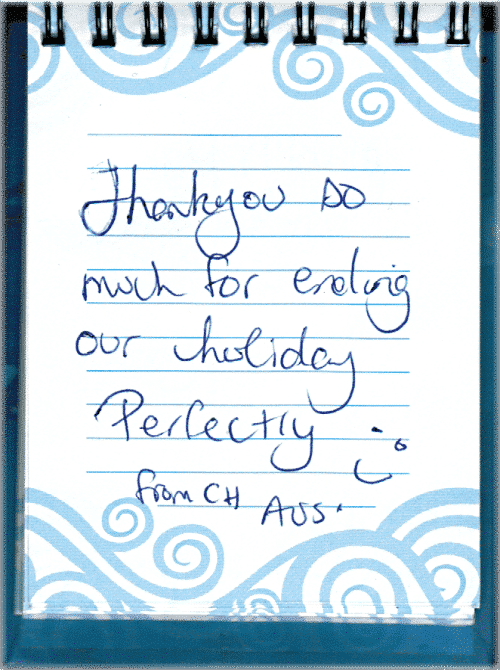 Thankyou so
much for ending
our holiday
Perfectly :)
from CH AUS.